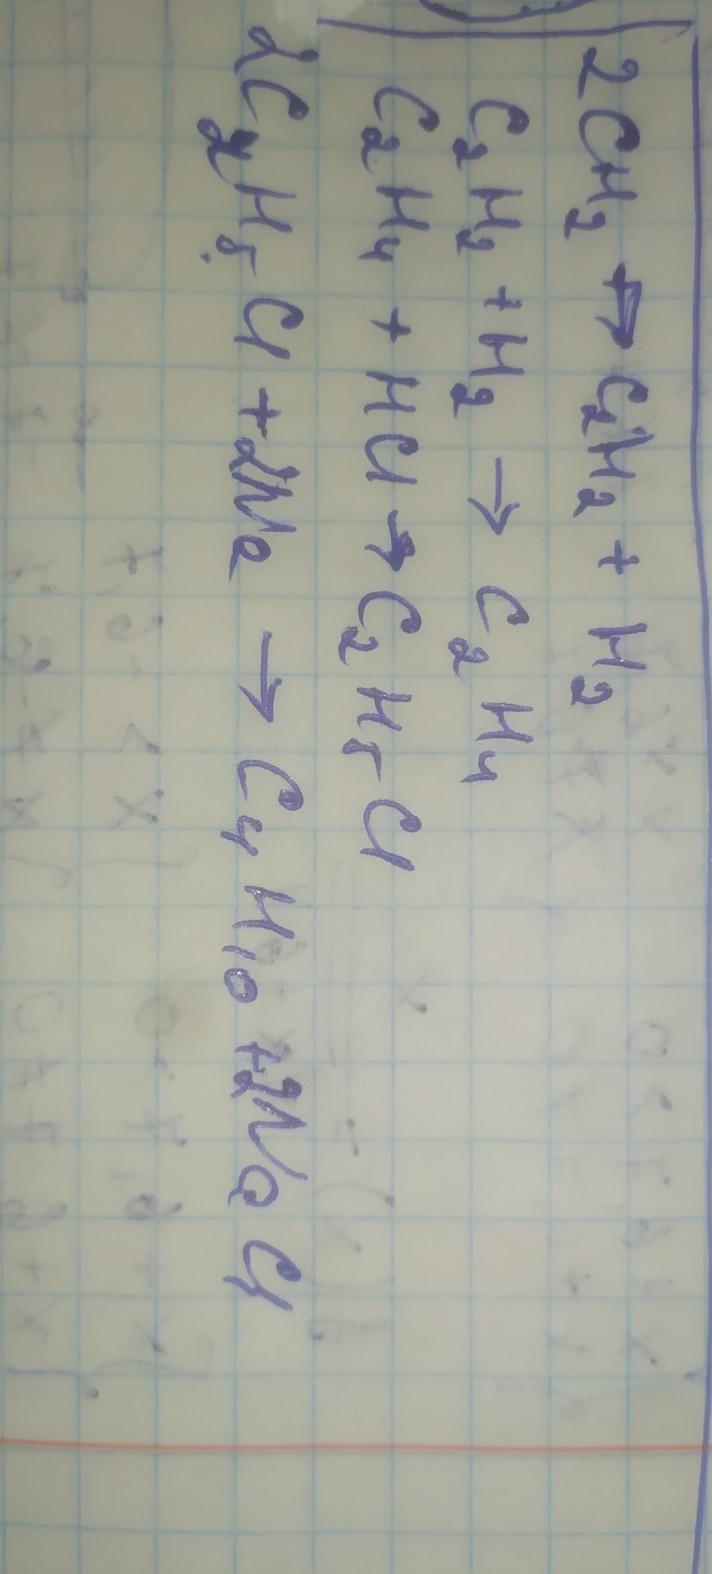 2CH₂ → C₂H₂ + H₂
C₂H₂ + H₂ → C₂H₄
C₂H₄ + HCl → C₂H₅Cl
2C₂H₅Cl + 2Na → C₄H₁₀ + 2NaCl